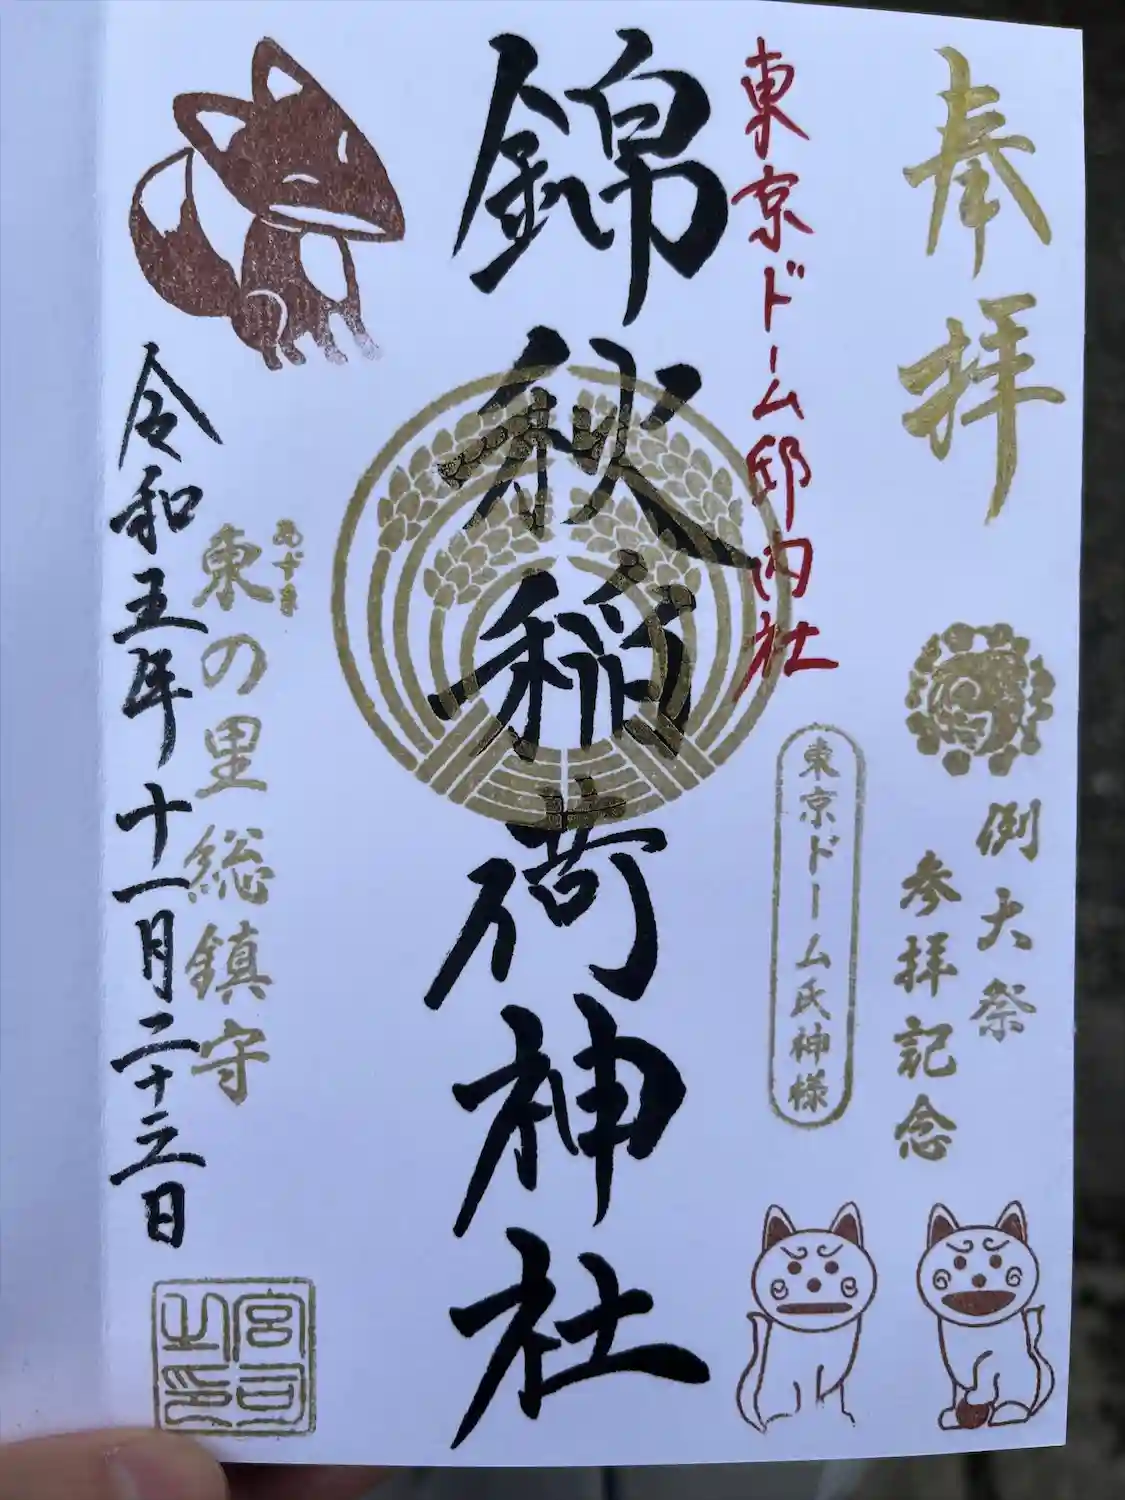 奉拝
例大祭
参拝記念
東京ドーム邸内社
東京ドーム氏神様
錦秋稲荷神社
あずま
東の里総鎮守
令和五年十一月二十三日
宮司
之印